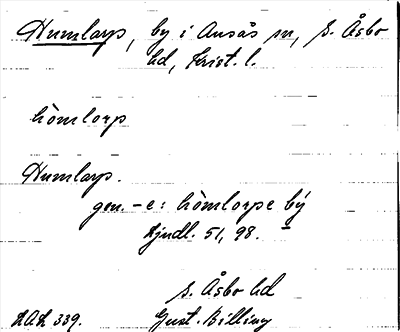 Humlarp, by i Ausås sn, S. Åsbo
hd, Krist. l.
hòmlorp
Humlarp.
gen. -e: hòmlorpe bý
Ljndl. 51, 98.
S. Åsbo hd
LAL 339. Gust. Billing